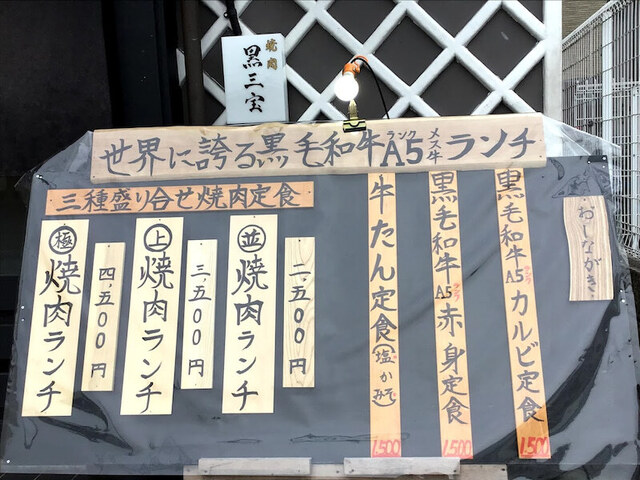 焼肉
黒三宝
世界に誇る黒毛和牛A5ランクメス牛ランチ
おしながき
黒毛和牛A5ランクカルビ定食 1,500
黒毛和牛A5ランク赤身定食 1,500
牛たん定食(塩かみそ) 1,500
三種盛り合せ焼肉定食
並焼肉ランチ
二、五00円
上焼肉ランチ
三、五00円
極焼肉ランチ
四、五00円